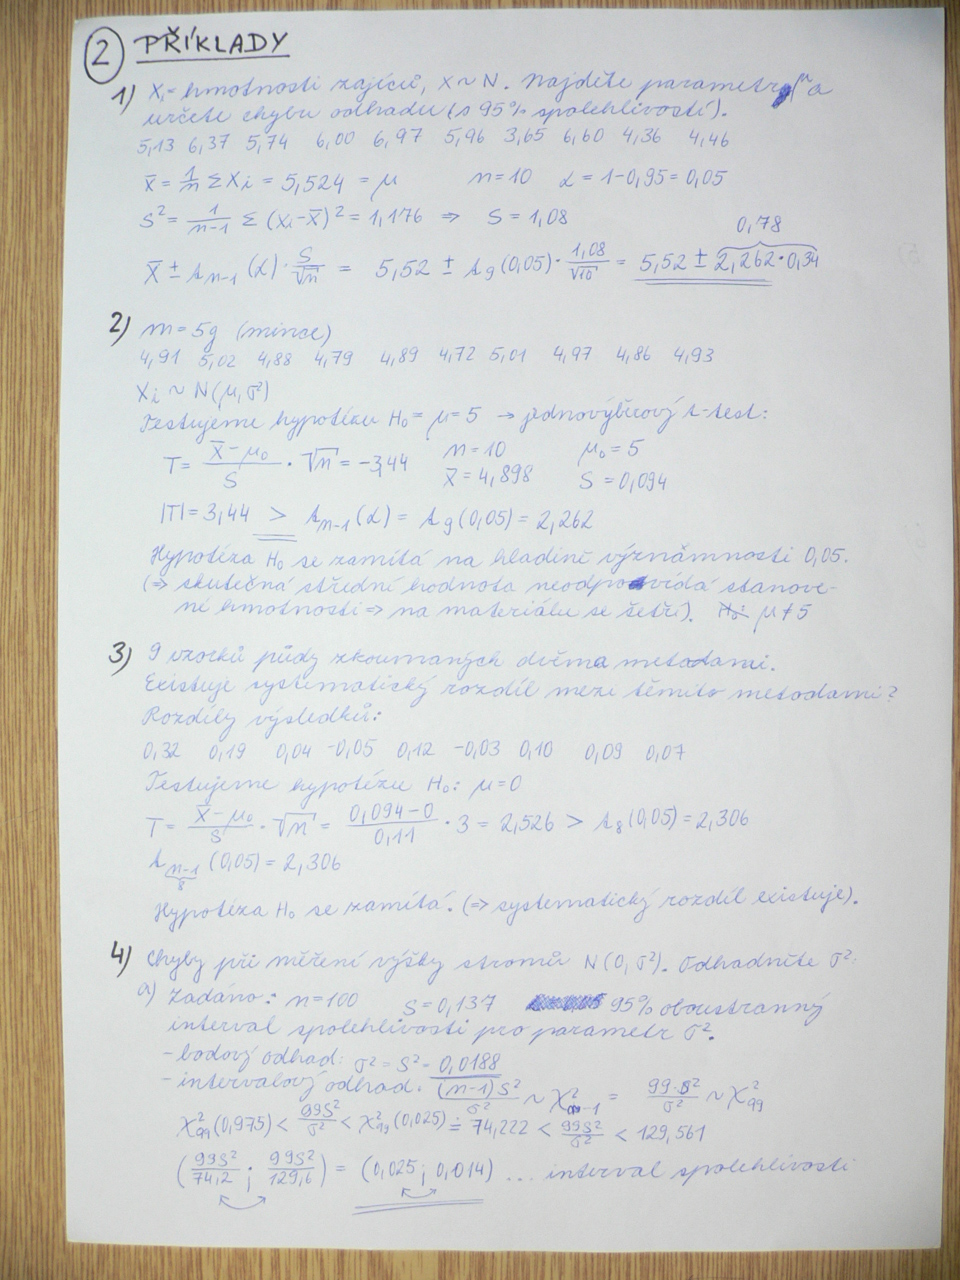 2 PŘÍKLADY
1) Xᵢ = hmotnosti zajíců, X ~ N. Najděte parametr μ a
určete chybu odhadu (s 95% spolehlivostí).
5,13 6,37 5,74 6,00 6,97 5,96 3,65 6,60 4,36 4,46
x̄ = 1/n Σxᵢ = 5,524 = μ n=10 α = 1-0,95 = 0,05
S² = 1/(n-1) Σ (xᵢ-x̄)² = 1,176 ⇒ S = 1,08
0,78
x̄ ± t_{n-1} (α) · S/√n = 5,52 ± t₉(0,05) · 1,08/√10 = 5,52 ± 2,262·0,34
2) m = 5g (mince)
4,91 5,02 4,88 4,79 4,89 4,72 5,01 4,97 4,86 4,93
Xᵢ ~ N(μ, σ²)
Testujeme hypotézu H₀ = μ = 5 → jednovýběrový t-test:
T = (x̄-μ₀)/S · √n = -3,44 n=10 μ₀=5
x̄ = 4,898 S = 0,094
|T| = 3,44 > t_{n-1}(α) = t₉(0,05) = 2,262
Hypotéza H₀ se zamítá na hladině významnosti 0,05.
(⇒ skutečná střední hodnota neodpovídá stanove-
né hmotnosti ⇒ na materiálu se šetří). H₀: μ ≠ 5
3) 9 vzorků půdy zkoumaných dvěma metodami.
Existuje systematický rozdíl mezi těmito metodami?
Rozdíly výsledků:
0,32 0,19 0,04 -0,05 0,12 -0,03 0,10 0,09 0,07
Testujeme hypotézu H₀: μ=0
T = (x̄-μ₀)/S · √n = (0,094-0)/0,11 · 3 = 2,526 > t₈(0,05) = 2,306
t_{n-1}(0,05) = 2,306
8
Hypotéza H₀ se zamítá. (⇒ systematický rozdíl existuje).
4) Chyby při měření výšky stromů N(0, σ²). Odhadněte σ²:
a) Zadáno: n=100 S = 0,137 95% oboustranný
interval spolehlivosti pro parametr σ².
- bodový odhad: σ² = S² = 0,0188
- intervalový odhad: (n-1)S²/σ² ~ χ²_{n-1} = 99·S²/σ² ~ χ²₉₉
χ²₉₉(0,975) < 99S²/σ² < χ²₉₉(0,025) = 74,222 < 99S²/σ² < 129,561
(99S²/74,2 ; 99S²/129,6) = (0,025 ; 0,014) ... interval spolehlivosti